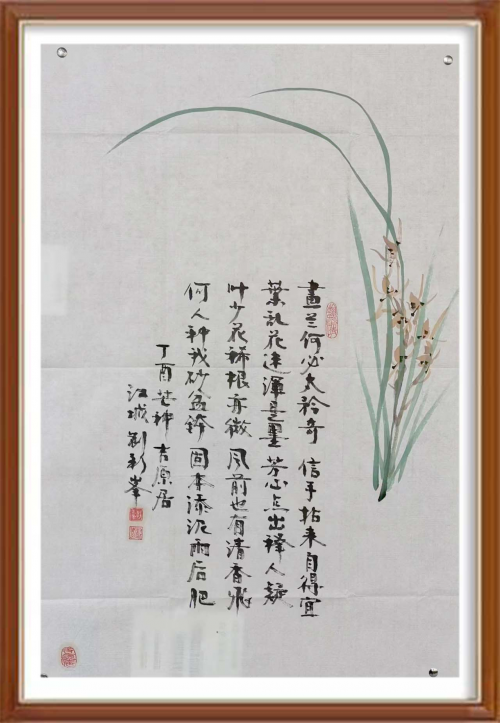 畫兰何必太矜奇 信手拈来自得宜
葉乱花迷渾是墨 芳心点出释人疑
叶少花稀根亦微 风前也有清香飛
何人种我砂盆鉢 固本添泥雨后肥
丁酉芒种 吉原居
江城 刘彩峯